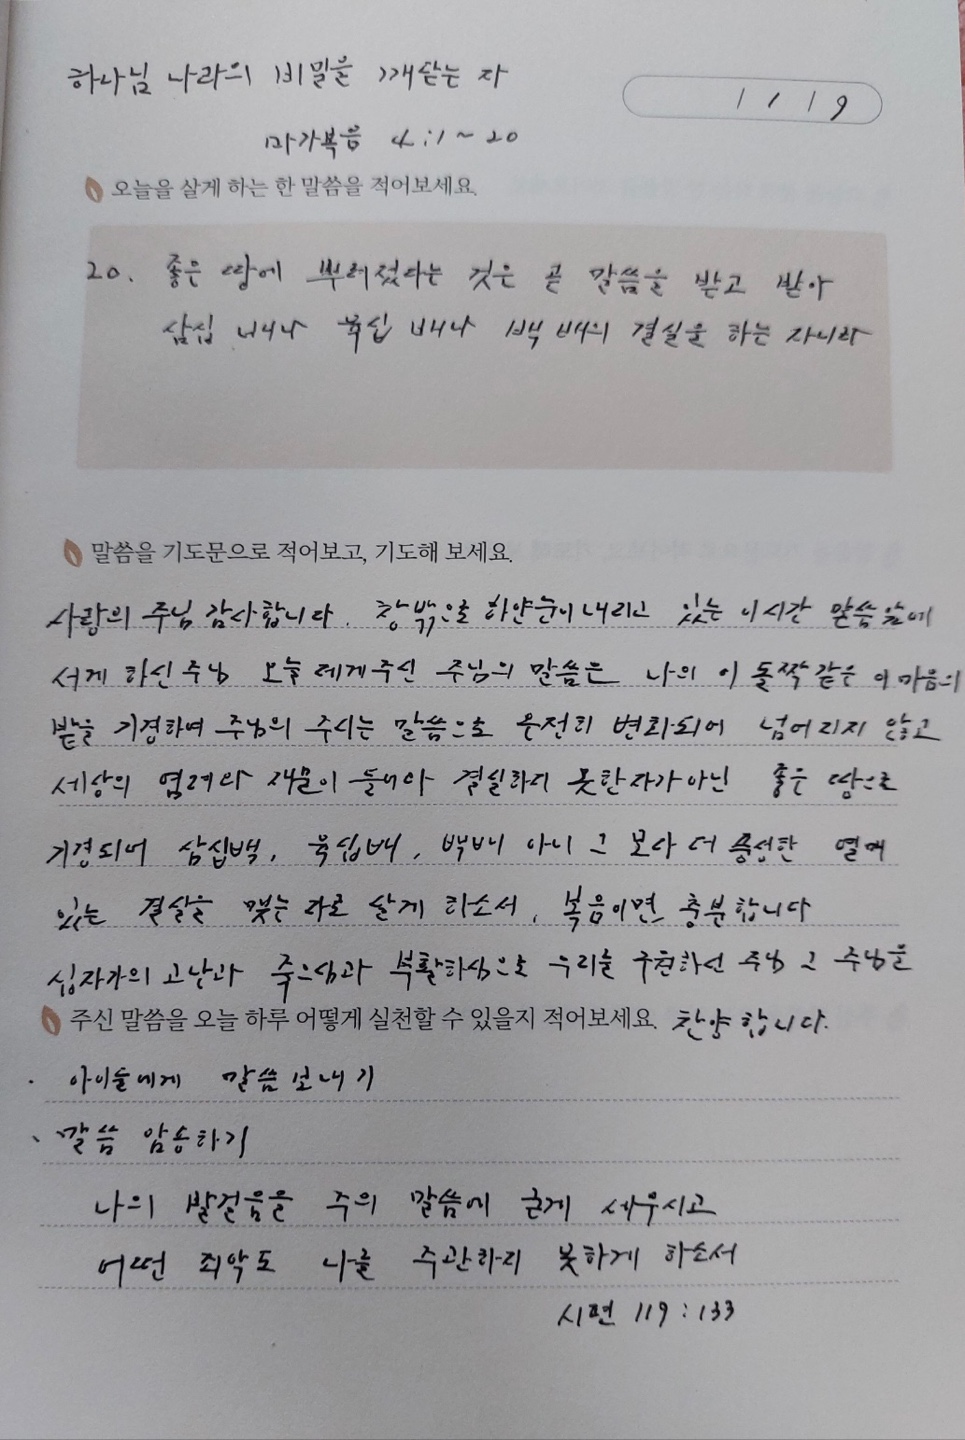 하나님 나라의 비밀을 깨닫는 자
1 / 19
마가복음 4:1~20
오늘을 살게 하는 한 말씀을 적어보세요.
20. 좋은 땅에 뿌려졌다는 것은 곧 말씀을 받고 받아
삼십 배나 육십 배나 백 배의 결실을 하는 자니라
말씀을 기도문으로 적어보고, 기도해 보세요.
사랑의 주님 감사합니다. 창밖으로 하얀눈이 내리고 있는 이시간 말씀앞에
서게 하신 주님 오늘 제게주신 주님의 말씀은 나의 이 돌짝같은 이 마음의
밭을 기경하여 주님의 주시는 말씀으로 온전히 변화되어 넘어지지 않고
세상의 염려와 재물이 들어와 결실하지 못한자가아닌 좋은 땅으로
기경되어 삼십백, 육십배, 백배 아니 그 보다 더 풍성한 열매
있는 결실을 맺는 자로 살게 하소서. 복음이면 충분합니다
십자가의 고난과 죽으심과 부활하심으로 우리를 구원하신 주님 그 주님을
주신 말씀을 오늘 하루 어떻게 실천할 수 있을지 적어보세요. 찬양합니다.
· 아이들에게 말씀 보내기
· 말씀 암송하기
나의 발걸음을 주의 말씀에 굳게 세우시고
어떤 죄악도 나를 주관하지 못하게 하소서
시편 119:133